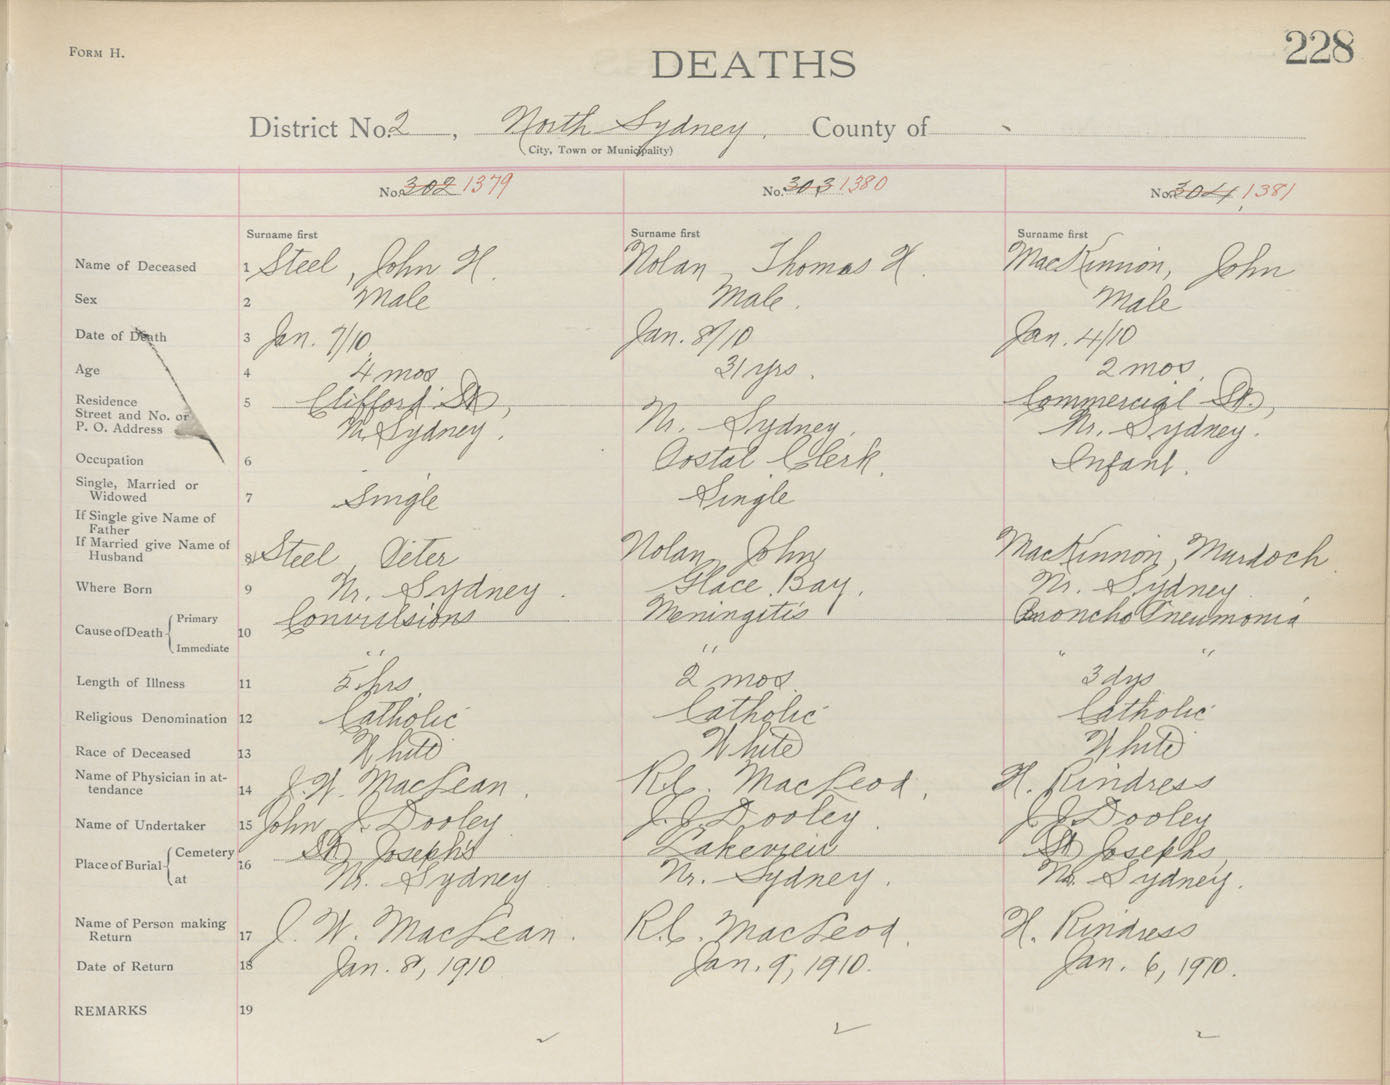 FORM H.
DEATHS
228
District No. 2, North Sydney. County of
(City, Town or Municipality)
No. 302 1379 No. 303 1380 No. 304 1381
Surname first Surname first Surname first
Name of Deceased 1 Steel, John H. Nolan, Thomas H. MacKinnon, John
Sex 2 Male Male. Male
Date of Death 3 Jan. 7/10 Jan. 8/10 Jan. 4/10
Age 4 4 mos 31 yrs. 2 mos.
Residence 5 Clifford St, Commercial St.,
Street and No. or
P. O. Address Nr. Sydney. Nr. Sydney. Nr. Sydney.
Occupation 6 Postal Clerk. Infant.
Single, Married or
Widowed 7 Single Single
If Single give Name of
Father
If Married give Name of
Husband 8 Steel, Peter Nolan, John MacKinnon, Murdoch
Where Born 9 Nr. Sydney. Glace Bay. Nr. Sydney.
Cause of Death Primary 10 Convulsions Meningitis Broncho Pneumonia
Immediate " " " "
Length of Illness 11 5 hrs. 2 mos. 3 dys
Religious Denomination 12 Catholic Catholic Catholic
Race of Deceased 13 White White White
Name of Physician in at-
tendance 14 J. W. MacLean. R.C. MacLeod. H. Rindress
Name of Undertaker 15 John J. Dooley J.J. Dooley. J.J. Dooley
Place of Burial Cemetery 16 St Joseph's Lakeview St Josephs,
at Nr. Sydney Nr. Sydney. Nr. Sydney.
Name of Person making
Return 17 J. W. MacLean. R.C. MacLeod. H. Rindress
Date of Return 18 Jan. 8, 1910 Jan. 9, 1910. Jan. 6, 1910.
REMARKS 19